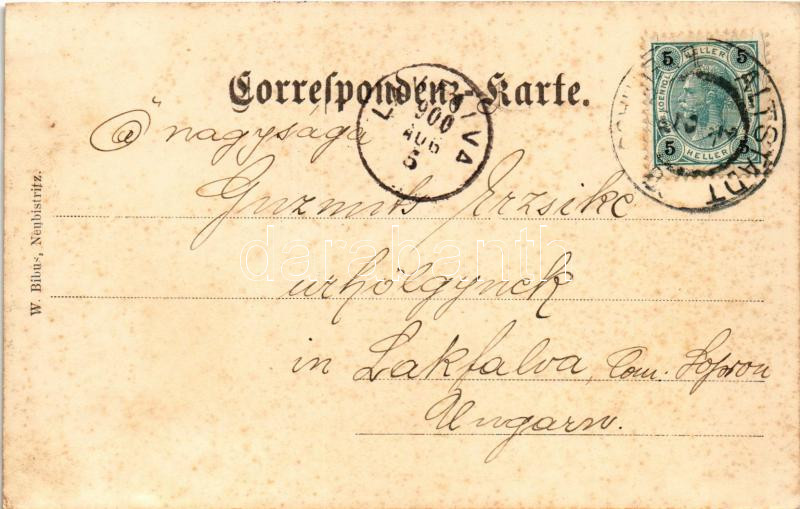 Correspondenz-Karte.
5 HELLER 5
5 HELLER 5
ALTSTADT
900
AUG
5
Ő nagysága
Guzmits Erzsike
urhölgynek
in Lakfalva, Com. Sopron
Ungarn.
W. Bibus, Neubistritz.
darabanth